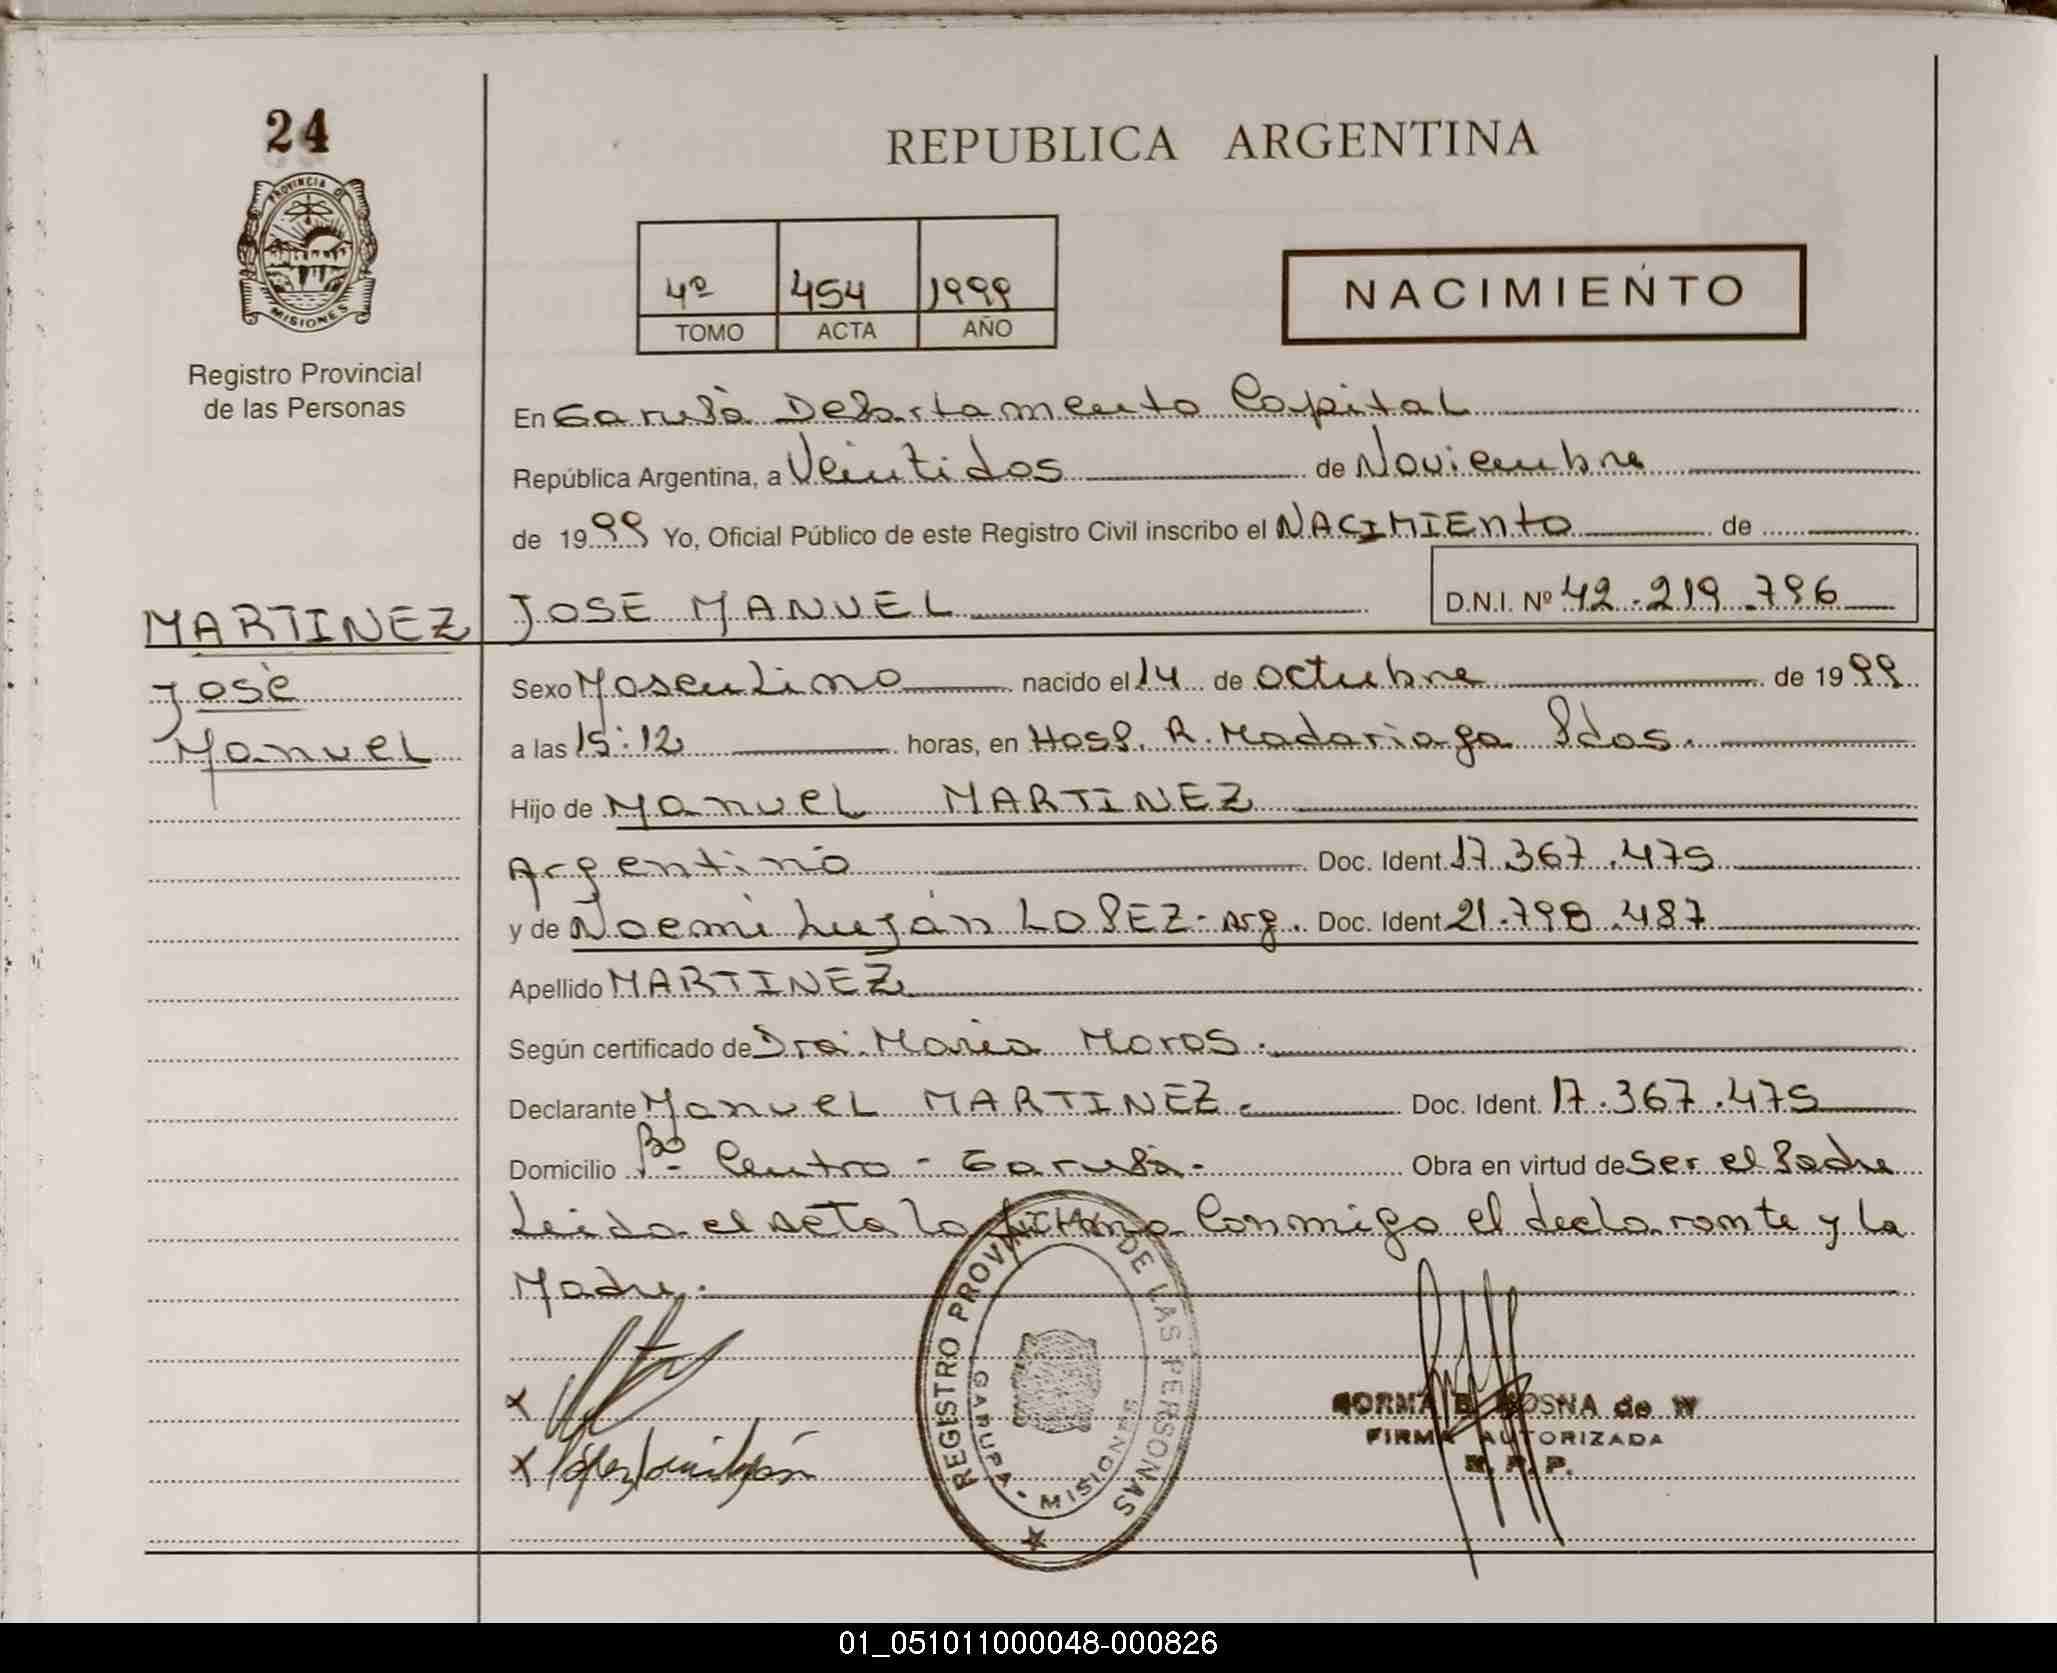 24
REPUBLICA ARGENTINA
PROVINCIA DE
MISIONES
Registro Provincial
de las Personas
4º 454 1999
TOMO ACTA AÑO
NACIMIENTO
En Garupà Departamento Capital
República Argentina, a Veintidos de Noviembre
de 1999 Yo, Oficial Público de este Registro Civil inscribo el NACIMIENTO de
MARTINEZ
Josè
Manuel
JOSE MANUEL D.N.I. Nº 42.219.796
Sexo Masculino nacido el 14 de octubre de 1999
a las 15:12 horas, en Hosp. R. Madariaga Pdas.
Hijo de Manuel MARTINEZ
Argentino Doc. Ident. 17.367.475
y de Noemi Luján LOPEZ - Arg. Doc. Ident. 21.798.487
Apellido MARTINEZ
Según certificado de Dra. Maria Moras.
Declarante Manuel MARTINEZ. Doc. Ident. 17.367.475
Domicilio Bº Centro - Garupà. Obra en virtud de Ser el Padre
Leida el acta la firma conmigo el declarante y la
Madre.
REGISTRO PROVINCIAL DE LAS PERSONAS
GARUPA - MISIONES
NORMA B. BOSNA de W
FIRMA AUTORIZADA
R. P. P.
01_051011000048-000826